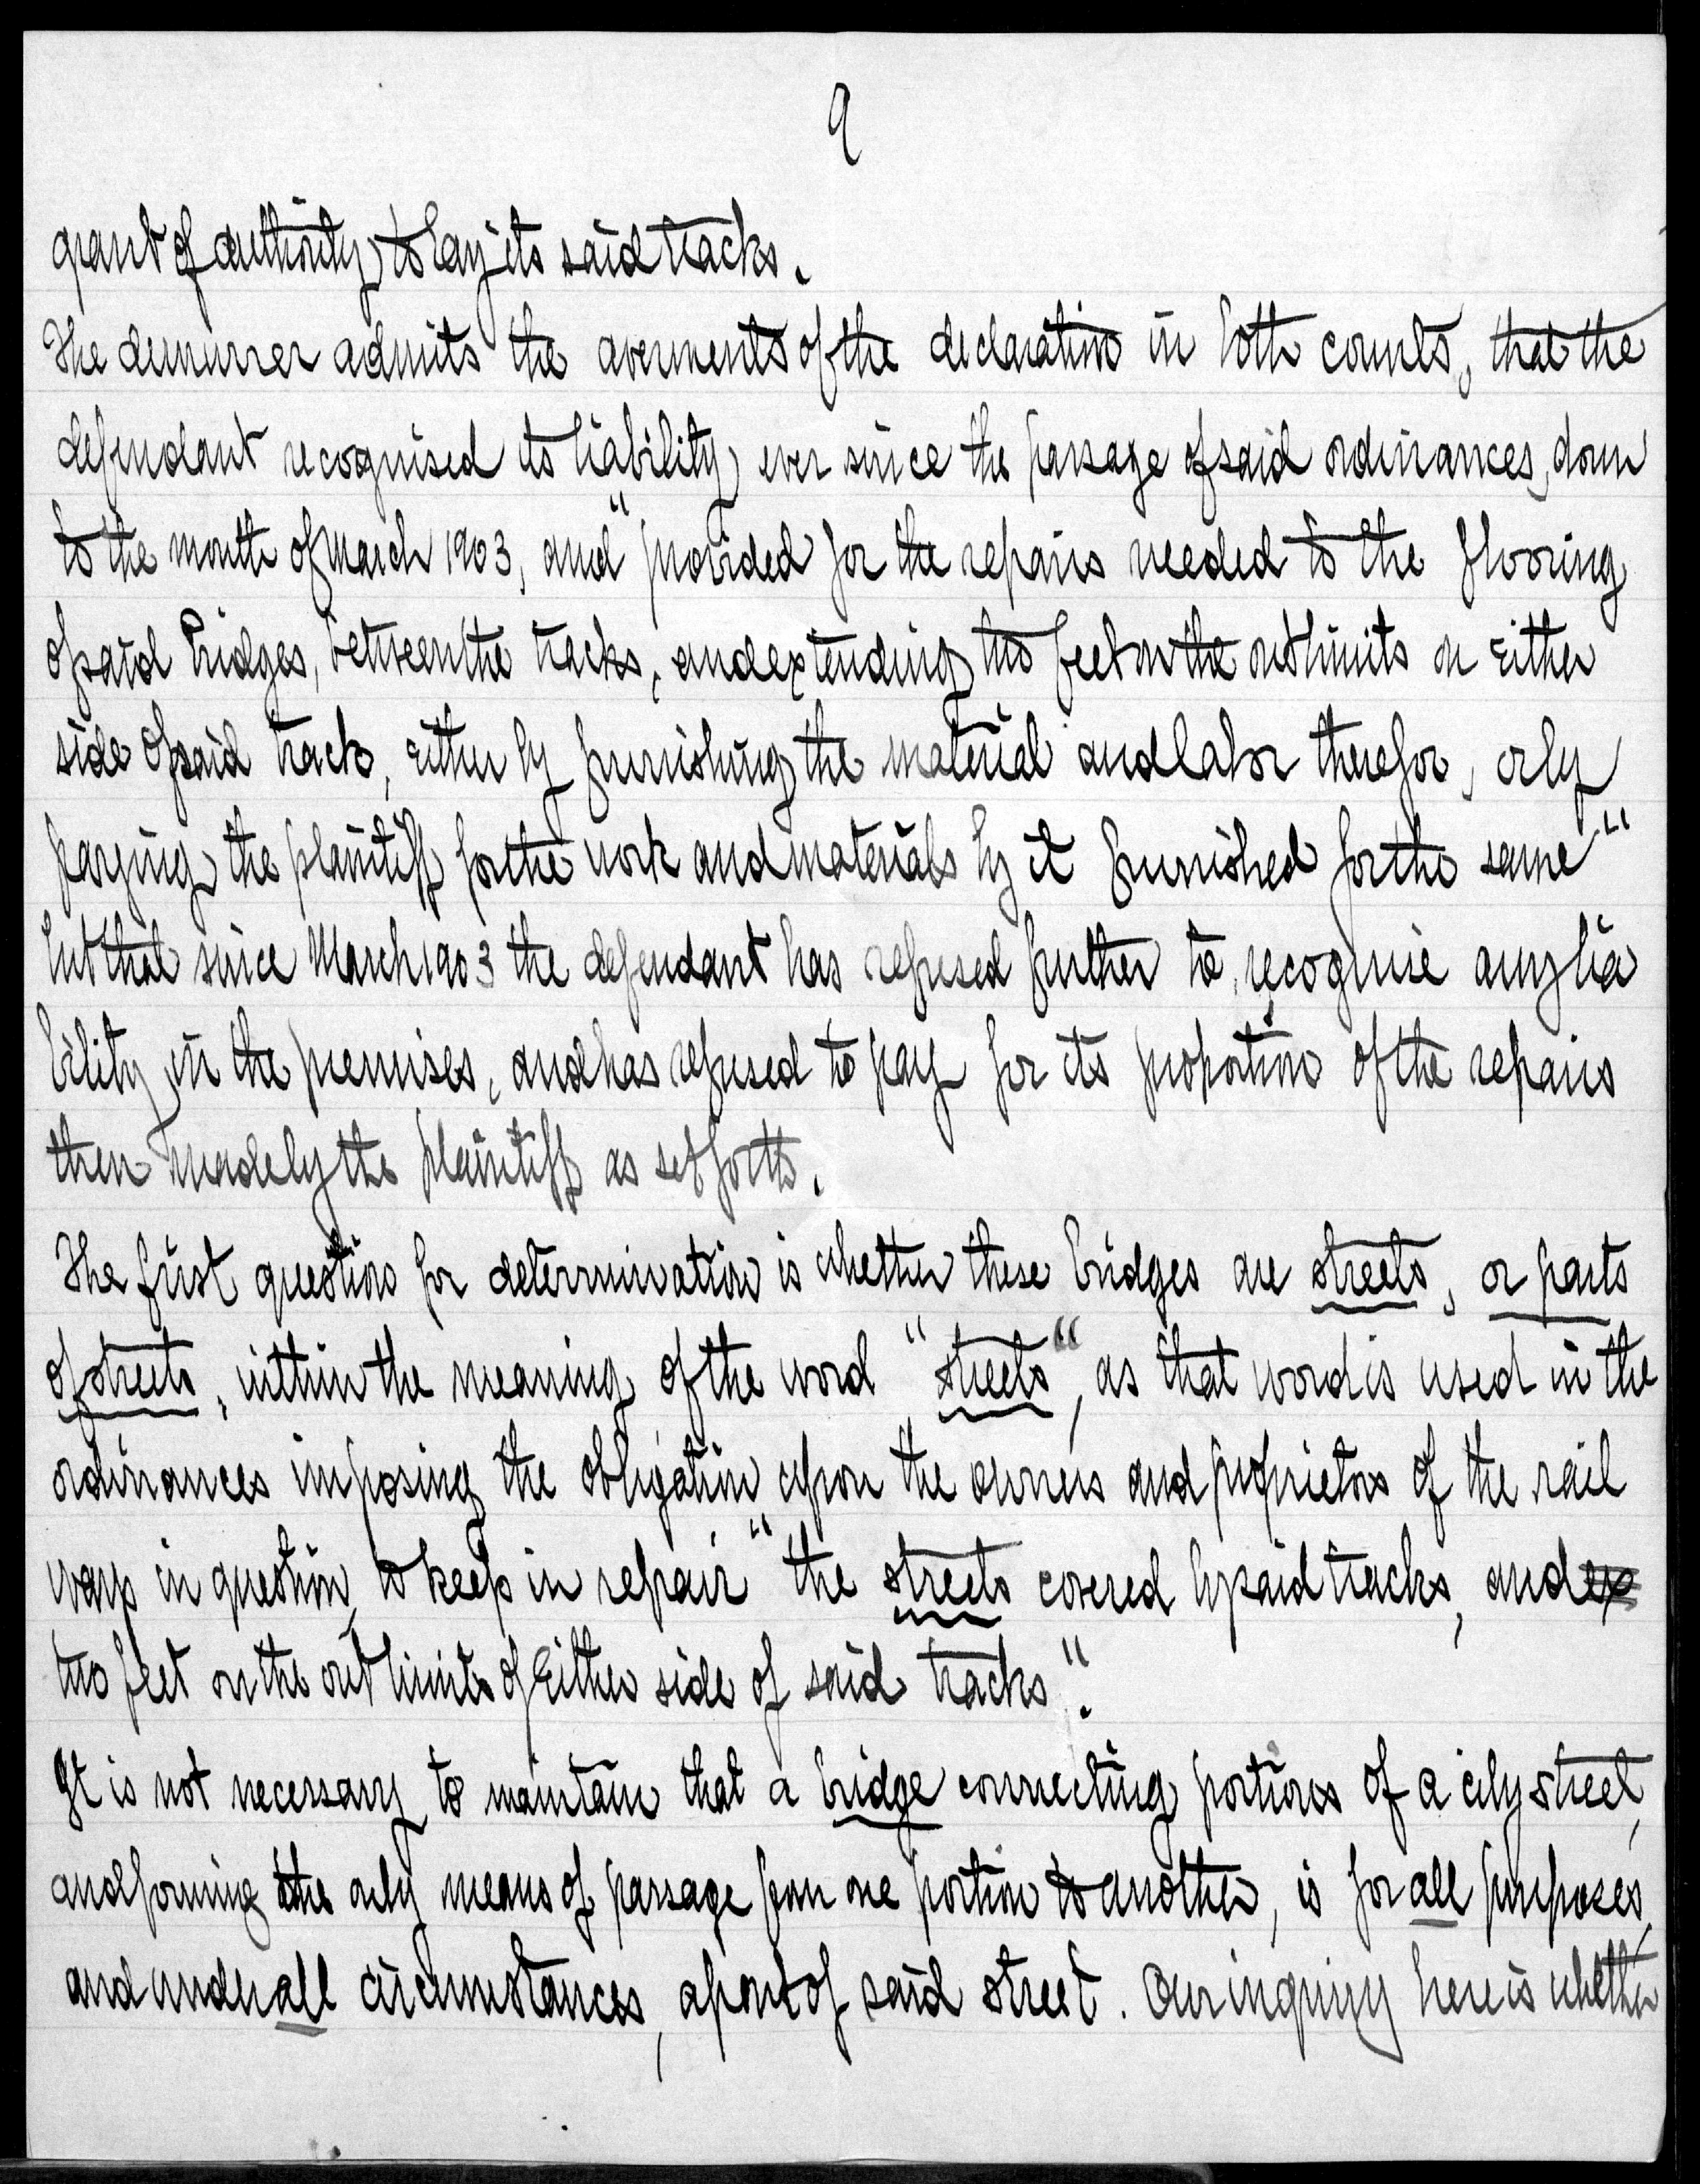 9
grant of authority, to lay its said tracks.
The demurrer admits the averments of the declaration in both counts, that the
defendant recognised its liability, ever since the passage of said ordinances, down
to the month of March 1903, and "provided for the repairs needed to the flooring
of said bridges, between the tracks, and extending two feet on the outlimits on either
side of said track, either by furnishing the material and labor therefor, or by
paying the plaintiff for the work and materials by it furnished for the same"
but that since March 1903 the defendant has refused further to recognise any lia
bility in the premises, and has refused to pay for its proportion of the repairs
then made by the plaintiff as set forth.
The first question for determination is whether these bridges are streets, or parts
of streets, within the meaning of the word "streets", as that word is used in the
ordinances imposing the obligation upon the owners and proprietors of the rail
ways in question, to keep in repair "the streets covered by said tracks, and ex
two feet on the out limits of either side of said tracks".
It is not necessary to maintain that a bridge connecting portions of a city street,
and forming the only means of passage from one portion to another, is for all purposes,
and under all circumstances, a part of said street. Our inquiry here is whether